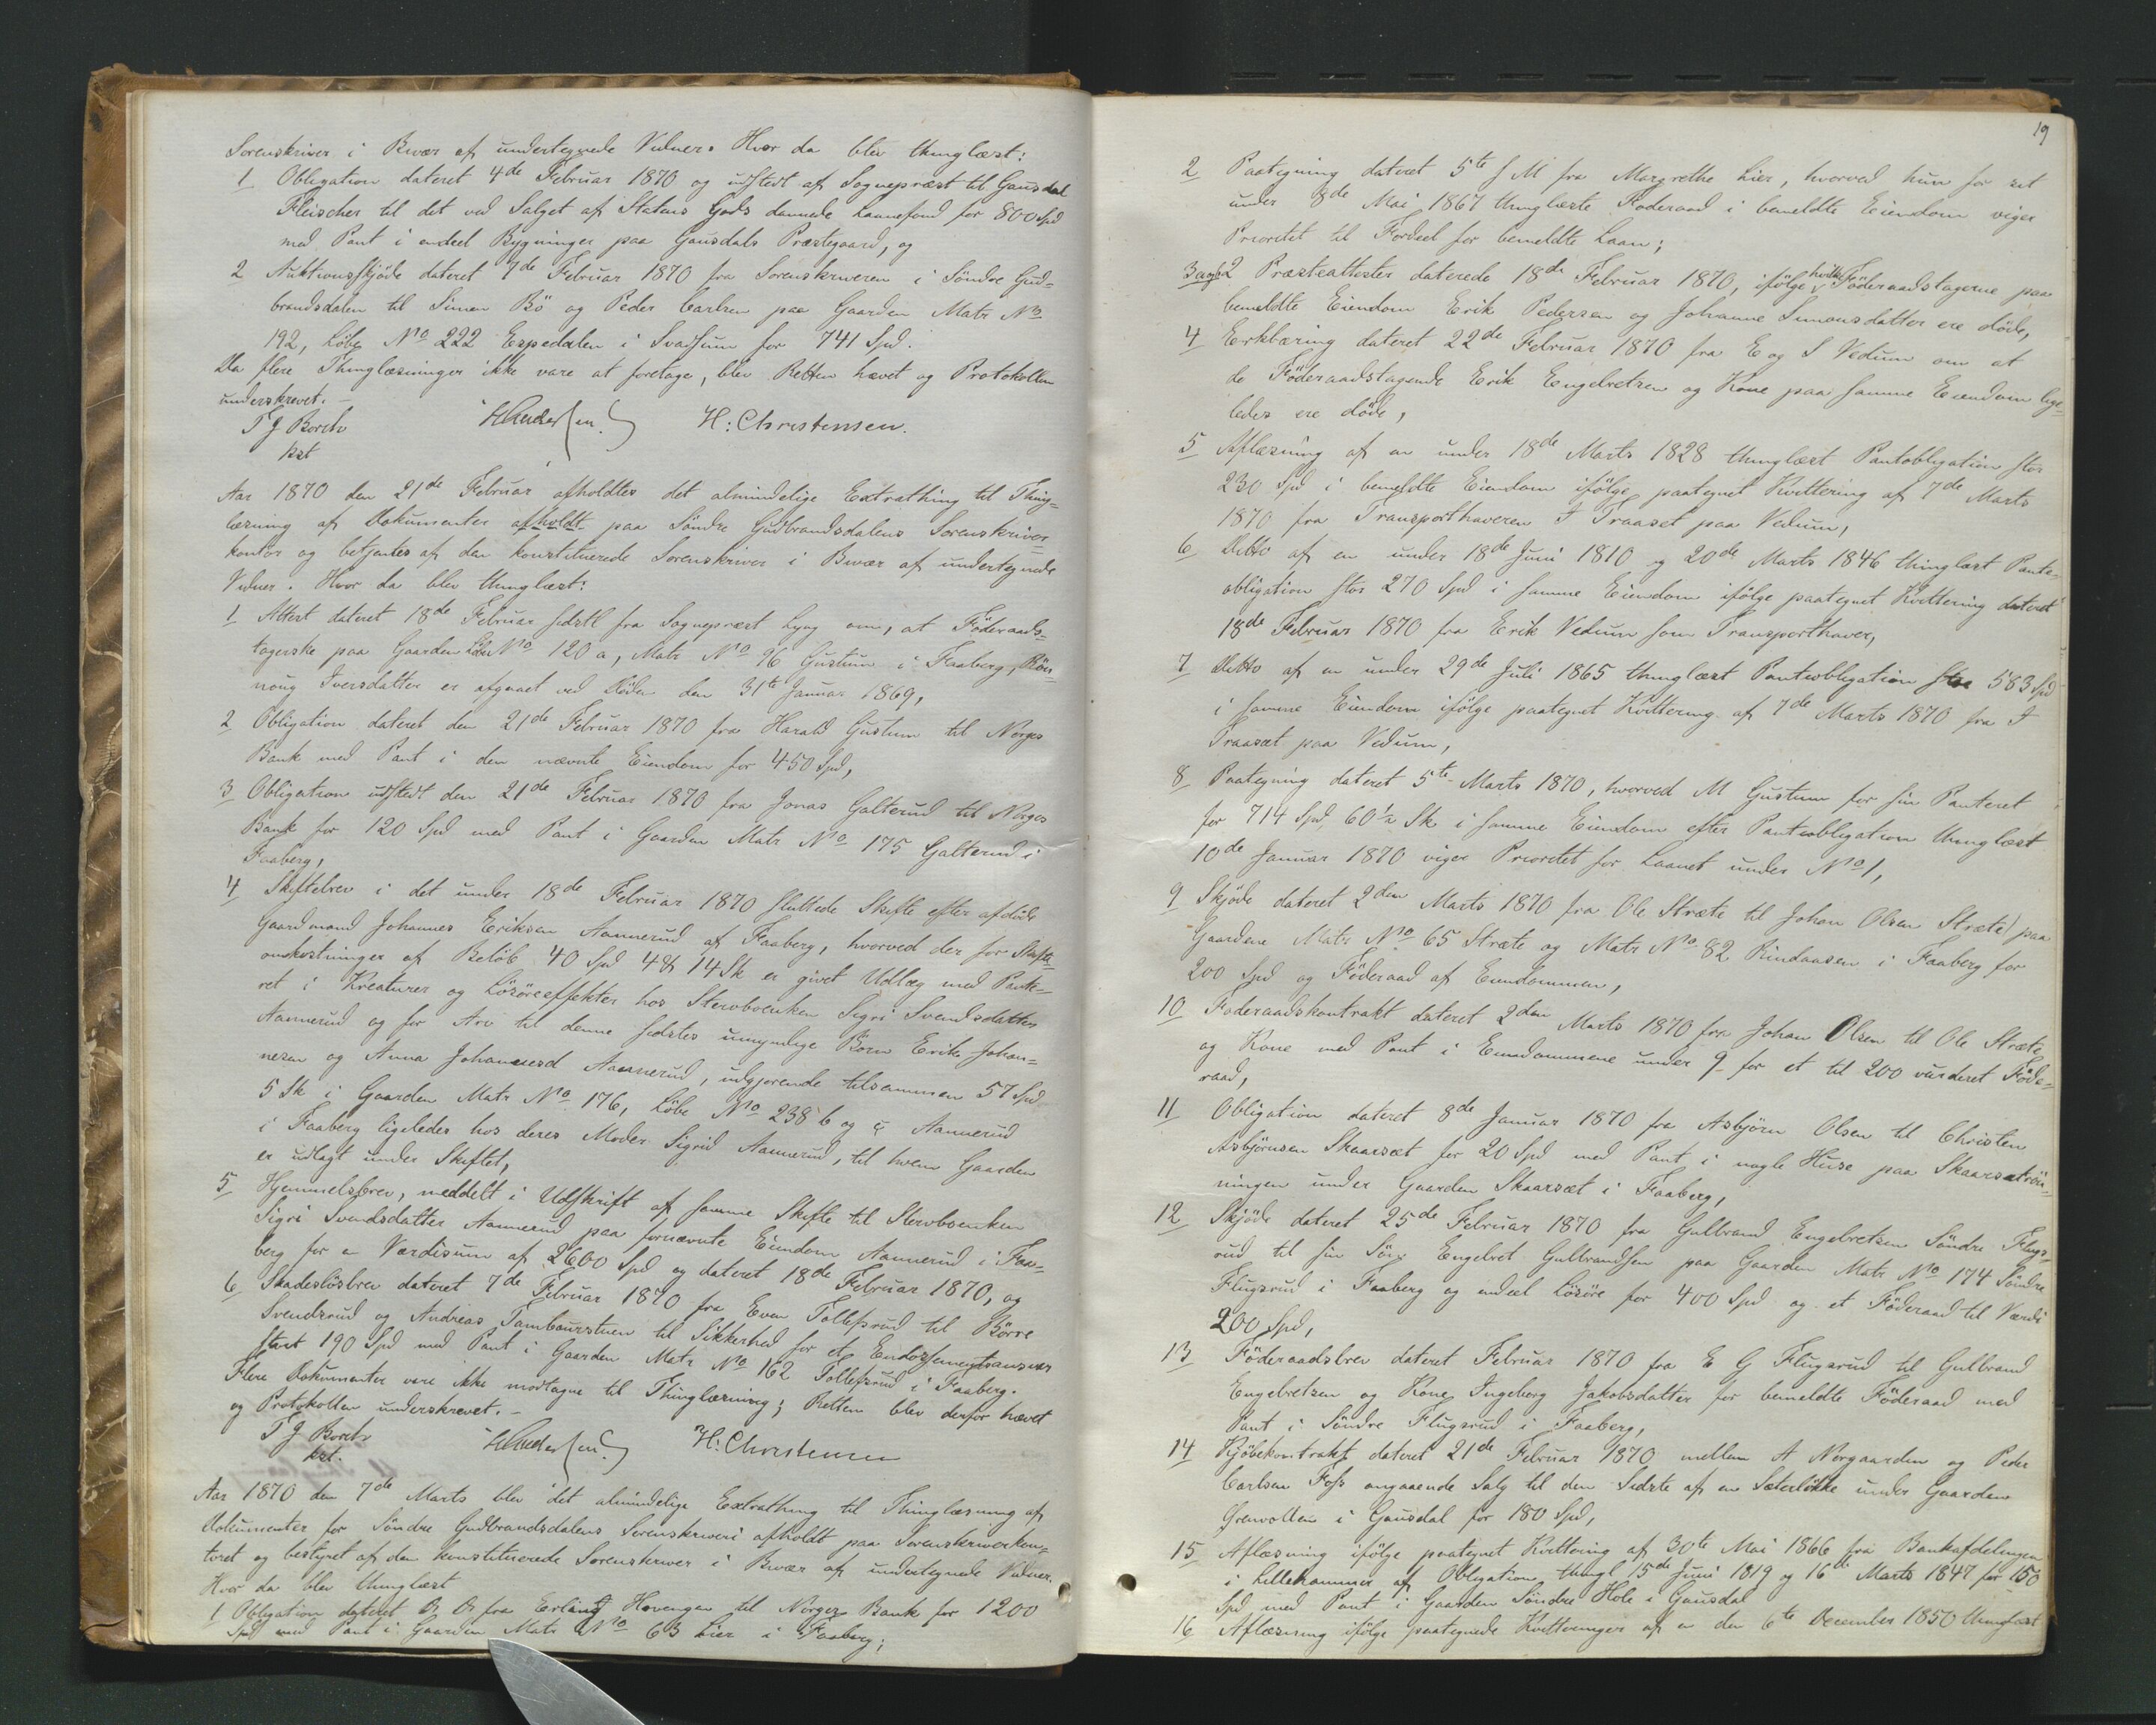 Sorenskriver i Bivær af undertegnede Vidner. Hvor da blev thinglæst:
1 Obligation dateret 4de Februar 1870 og udstedt af Sognepræst til Gausdal
Fleischer til det ved Salget af Statens Gods dannede Laanefond for 800 Spd
med Pant i endeel Bygninger paa Gausdals Præstegaard, og
2 Auktionsskjøde dateret 7de Februar 1870 fra Sorenskriveren i Søndre Gud-
brandsdalen til Simen Bö og Peder Carlsen paa Gaarden Matr No
192, Löbe No 222 Espedalen i Svadsum for 741 Spd.
Da flere Thinglæsninger ikke vare at foretage, blev Retten hævet og Protokollen
underskrevet.-
T J Borch
kst
H: Christensen.
Aar 1870 den 21de Februar afholdtes det almindelige Extrathing til Thing-
læsning af Dokumenter afholdt paa Söndre Gudbrandsdalens Sorenskriver
kontor og betjentes af den konstituerede Sorenskriver i Bivær af undertegnede
Vidner. Hvor da blev thinglæst:
1 Attest dateret 18de Februar sidstl fra Sognepræst Lyng om, at Föderaads-
tagerske paa Gaarden Löbe No 120 a, Matr No 96 Gustum i Faaberg, Rön-
noug Iversdatter er afgaaet ved Döden den 31te Januar 1869,
2 Obligation dateret den 21de Februar 1870 fra Harald Gustum til Norges
Bank med Pant i den nævnte Eiendom for 450 Spd,
3 Obligation udstedt den 21de Februar 1870 fra Jonas Galterud til Norges
Bank for 120 Spd med Pant i Gaarden Matr No 175 Galterud i
Faaberg,
4 Skiftebrev i det under 18de Februar 1870 sluttede Skifte efter afdöde
Gaardmand Johannes Eriksen Aannerud af Faaberg, hvorved der for Skifte-
omkostninger af Belöb 40 Spd 4 14 Sk er givet Udlæg med Pante-
ret i Kreaturer og Lösöreeffekter hos Stervboenken Sigri Svendsdatter
Aannerud og for Arv til denne sidstes umyndige Børn Erik Johan-
nesen og Anna Johannesd Aannerud, udgjørende tilsammen 57 Spd
5 Sk i Gaarden Matr No 176, Löbe No 238 b og c Aannerud
i Faaberg ligeledes hos deres Moder Sigrid Aannerud, til hvem Gaarden
er udlagt under Skiftet,
5 Hjemmelsbrev, meddelt i Udskrift af samme Skifte til Stervboenken
Sigri Svendsdatter Aannerud paa fornævnte Eiendom Aannerud i Faa-
berg for en Værdisum af 2600 Spd og dateret 18de Februar 1870, og
6 Skadeslösbrev dateret 7de Februar 1870 fra Even Tollefsrud til Börre
Svendsrud og Andreas Tamboursstuen til Sikkerhed for et Endossementsansvar
stort 190 Spd med Pant i Gaarden Matr No 162 Tollefsrud i Faaberg.
Flere Dokumenter vare ikke modtagne til Thinglæsning; Retten blev derfor hævet
og Protokollen underskrevet.-
T J Borch
kst.
H: Christensen
Aar 1870 den 7de Marts blev det almindelige Extrathing til Thinglæsning af
Dokumenter for Söndre Gudbrandsdalens Sorenskriveri afholdt paa Sorenskriverkon-
toret og bestyret af den konstituerede Sorenskriver i Bivær af undertegnede Vidner.
Hvor da blev thinglæst
1 Obligation dateret D. D. fra Erland Hovengen til Norges Bank for 1200
Spd med Pant i Gaarden Matr No 63 Lier i Faaberg;
19
2 Paategning dateret 5te s M fra Margrethe Lier, hvorved hun for sit
under 8de Mai 1867 thinglæste Føderaad i bemeldte Eiendom viger
Prioritet til Fordeel for bemeldte Laan;
3 a og b 2 Præsteattester daterede 18de Februar 1870, ifölge hvilke Föderaadstagerne paa
bemeldte Eiendom Erik Pedersen og Johanne Simonsdatter ere döde,
4 Erklæring dateret 22de Februar 1870 fra E og S Vedum om at
de Föderaadstagende Erik Engebretsen og Kone paa samme Eiendom lige-
ledes ere döde,
5 Aflæsning af en under 18de Marts 1828 thinglæst Pantobligation stor
230 Spd i bemeldte Eiendom ifölge paategnet Kvittering af 7de Marts
1870 fra Transporthaveren I Traaset paa Vedum,
6 Ditto af en under 18de Juni 1810 og 20de Marts 1846 thinglæst Pante-
obligation stor 270 Spd i samme Eiendom ifölge paategnet Kvittering dateret
18de Februar 1870 fra Erik Vedum som Transporthaver,
7 Ditto af en under 29de Juli 1865 thinglæst Panteobligation stor 583 Spd
i samme Eiendom ifölge paategnet Kvittering af 7de Marts 1870 fra I
Traaset paa Vedum,
8 Paategning dateret 5te Marts 1870, hvorved M Gustum for sin Panteret
for 714 Spd 60½ Sk i samme Eiendom efter Panteobligation thinglæst
10de Januar 1870 viger Prioritet for Laanet under No 1,
9 Skjöde dateret 2den Marts 1870 fra Ole Stræte til Johan Olsen Stræte paa
Gaardene Matr No 65 Stræte og Matr No 82 Rindaasen i Faaberg for
200 Spd og Föderaad af Eiendommen,
10 Foderaadskontrakt dateret 2den Marts 1870 fra Johan Olsen til Ole Stræte
og Kone med Pant i Eiendommene under 9 for et til 200 vurderet Föde-
raad,
11 Obligation dateret 8de Januar 1870 fra Asbjörn Olsen til Christen
Asbjörnsen Skaarsæt for 20 Spd med Pant i nogle Huse paa Skaarsætrön-
ningen under Gaarden Skaarsæt i Faaberg,
12 Skjöde dateret 25de Februar 1870 fra Gulbrand Engebretsen Söndre Flugs-
rud til sin Sön Engebret Gulbrandsen paa Gaarden Matr No 174 Söndre
Flugsrud i Faaberg og endeel Lösöre for 400 Spd og et Föderaad til Værdi
200 Spd,
13 Föderaadsbrev dateret Februar 1870 fra E G Flugsrud til Gulbrand
Engebretsen og Kone Ingeborg Jakobsdatter for bemeldte Föderaad med
Pant i Söndre Flugsrud i Faaberg,
14 Kjöbekontrakt dateret 21de Februar 1870 mellem A Norgaarden og Peder
Carlsen Foss angaaende Salg til den Sidste af en Sæterløkke under Gaarden
i Gausdal for 180 Spd,
15 Aflæsning ifölge paategnet Kvittering af 30te Mai 1866 fra Bankafdelingen
i Lillehammer af Obligation thingl 15de Juni 1819 og 16de Marts 1847 for 150
Spd med Pant i Gaarden Söndre Hole i Gausdal
16 Aflæsning ifölge paategnede Kvitteringer af en den 6te December 1850 thinglæst